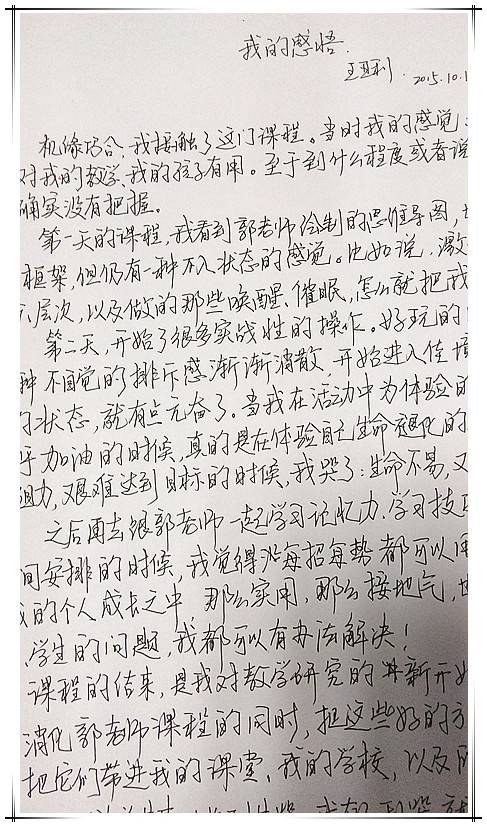 我的感悟.
王亚利. 2015.10.1
机缘巧合,我接触了这门课程。当时我的感觉:
对我的教学、我的孩子有用。至于到什么程度或者说
确实没有把握。
第一天的课程,我看到郭老师绘制的思维导图,
框架,但仍有一种不入状态的感觉。比如说,激
层次,以及做的那些唤醒、催眠,怎么就把我
第二天,开始了很多实战性的操作。好玩的
种不自觉的排斥感渐渐消散,开始进入佳境
状态,就有点亢奋了。当我在活动中为体验的
手加油的时候,真的是在体验自己生命都退化的
阻力,艰难达到目标的时候,我哭了:生命不易,又
之后再去跟郭老师一起学习记忆力、学习技巧
间安排的时候,我觉得这每招每势都可以用
我的个人成长之中,那么实用,那么接地气,
学生的问题,我都可以有办法解决!
课程的结束,是我对教学研究的新开始
消化郭老师课程的同时,把这些好的方
把它们带进我的课堂、我的学校,以及